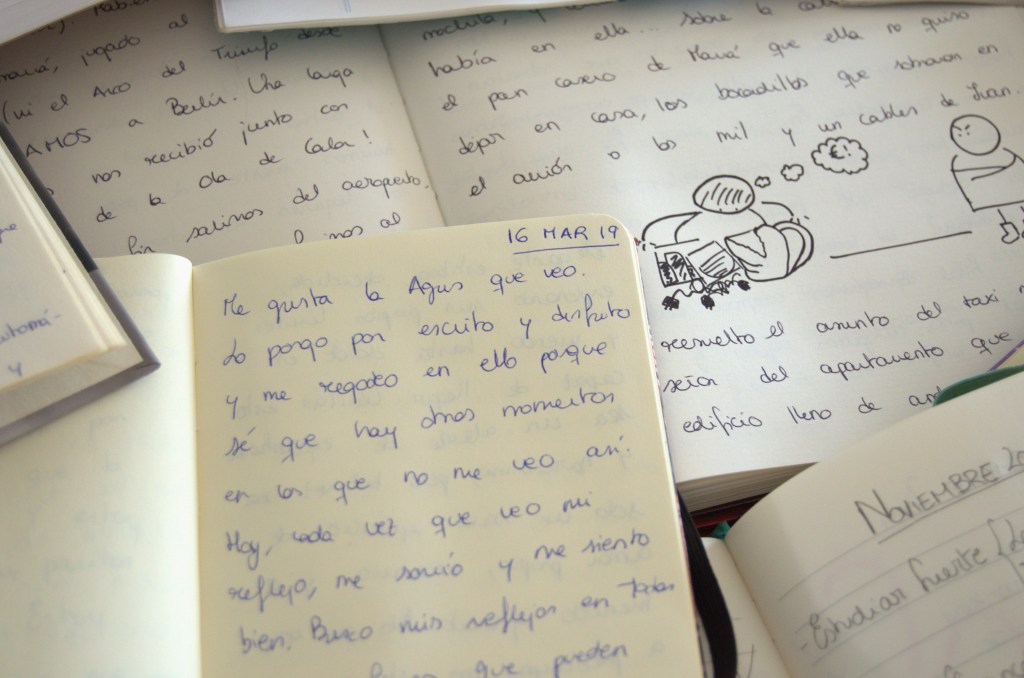 mamá, jugado al
(vi el Arco del Triunfo desde
AMOS a Berlín. Una larga
nos recibió junto con
de la Ola de Calor!
salimos del aeropuerto,
al
había en ella... sobre la
el pan casero de Mamá que ella no quiso
dejar en casa, los bocadillos que sobraron en
el avión o los mil y un cables de Juan.
€
resuelto el asunto del taxi
señor del apartamento que
edificio lleno de
utomá-
y
16 MAR 19
Me gusta la Agus que veo.
Lo pongo por escrito y disfruto
y me regodeo en ello porque
sé que hay otros momentos
en los que no me veo así.
Hoy, cada vez que veo mi
reflejo, me sonrío y me siento
bien. Busco mis reflejos en todas
que pueden
NOVIEMBRE 20
- Estudiar fuerte